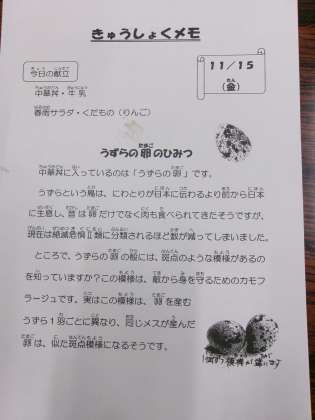 きゅうしょくメモ
11/15
(金)
今日の献立
中華丼・牛乳
春雨サラダ・くだもの(りんご)
うずらの卵のひみつ
中華丼に入っているのは「うずらの卵」です。
うずらという鳥は、にわとりが日本に伝わるより前から日本
に生息し、昔は卵だけでなく肉も食べられてきたそうですが、
現在は絶滅危惧Ⅱ類に分類されるほど数が減ってしまいました。
ところで、うずらの卵の殻には、斑点のような模様があるの
を知っていますか?この模様は、敵から身を守るためのカモフ
ラージュです。実はこの模様は、卵を産む
うずら1羽ごとに異なり、同じメスが産んだ
卵は、似た斑点模様になるそうです。
模様が